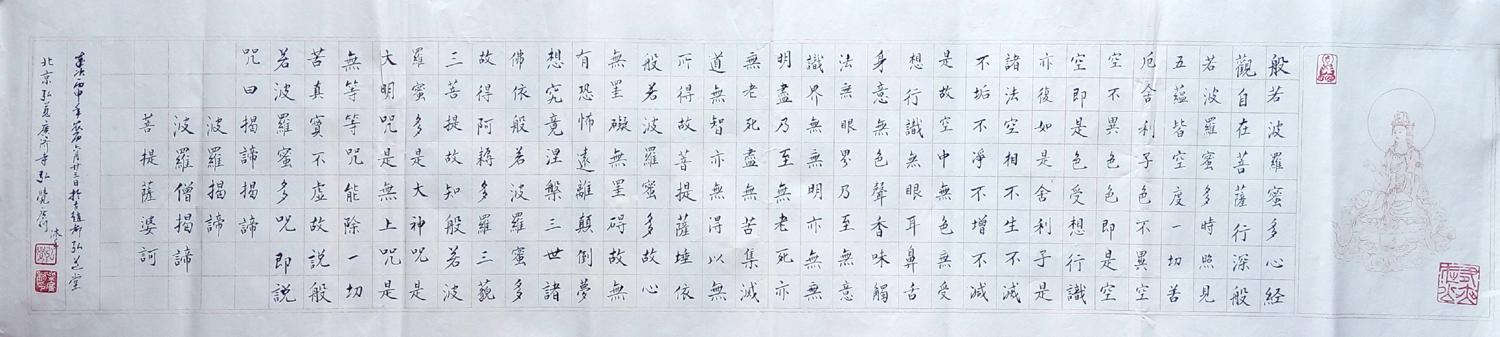 般若波羅蜜多心経
觀自在菩薩行深般
若波羅蜜多時照見
五蘊皆空度一切苦
厄舍利子色不異空
空不異色色即是空
空即是色受想行識
亦復如是舍利子是
諸法空相不生不滅
不垢不淨不增不減
是故空中無色無受
想行識無眼耳鼻舌
身意無色聲香味觸
法無眼界乃至無意
識界無無明亦無無
明盡乃至無老死亦
無老死盡無苦集滅
道無智亦無得以無
所得故菩提薩埵依
般若波羅蜜多故心
無罣礙無罣碍故無
有恐怖遠離顛倒夢
想究竟涅槃三世諸
佛依般若波羅蜜多
故得阿耨多羅三藐
三菩提故知般若波
羅蜜多是大神咒是
大明咒是無上咒是
無等等咒能除一切
苦真實不虛故説般
若波羅蜜多咒即説
咒曰揭諦揭諦
波羅揭諦
波羅僧揭諦
菩提薩婆訶
丙申年八月廿三日於弘芝堂
北京廣濟寺弘覺沐手